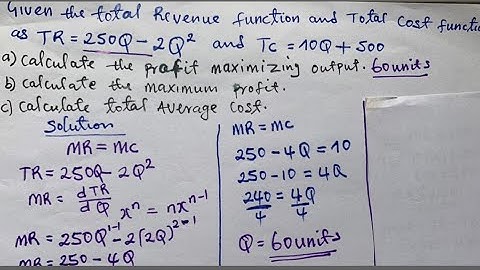 Given the total Revenue function and Total Cost function
as TR = 250Q - 2Q² and TC = 10Q + 500
a) Calculate the profit maximizing output. 60units
b) Calculate the maximum profit.
c) Calculate total Average Cost.
Solution
MR = MC
TR = 250Q - 2Q²
MR = dTR/dQ xⁿ = nxⁿ⁻¹
MR = 250Q¹⁻¹ - 2(2Q)²⁻¹
MR = 250 - 4Q
MR = MC
250 - 4Q = 10
250 - 10 = 4Q
240/4 = 4Q/4
Q = 60units